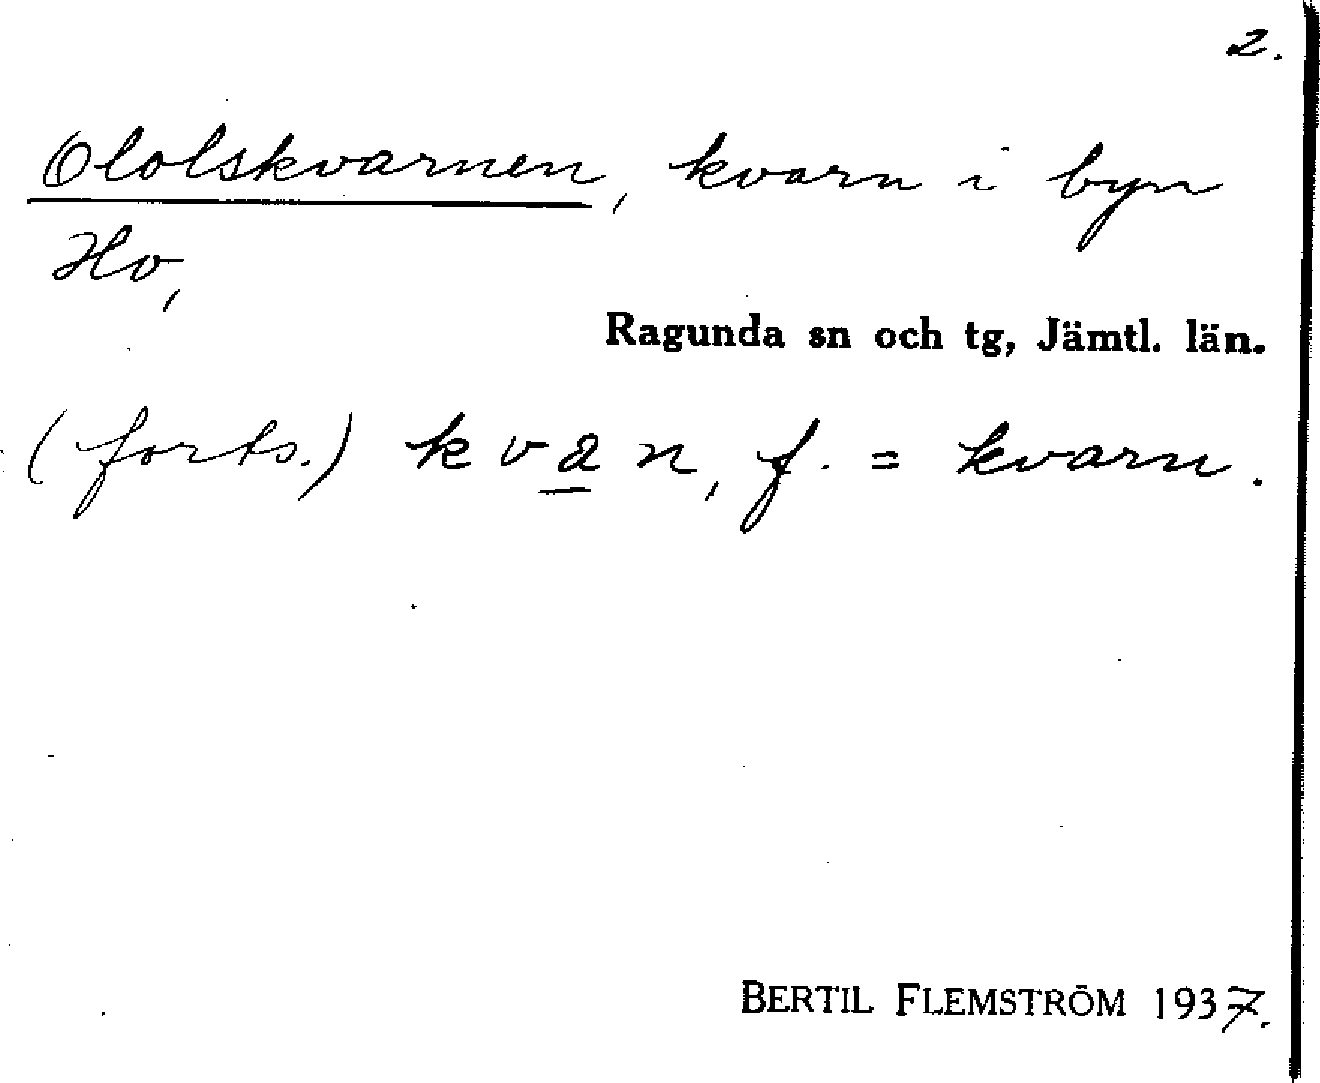 2.
Ololskvarnen, kvarn i byn
Ho,
Ragunda sn och tg, Jämtl. län.
(forts.) kvan, f. = kvarn.
BERTIL FLEMSTRÖM 1937.